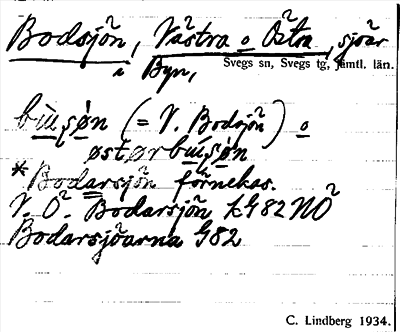 Bodsjön, Västra o Östra, sjöar
i Byn,
Svegs sn, Svegs tg, Jämtl. län.
(= V. Bodsjön) o
*Bodarsjön förnekas.
V. Ö. Bodarsjön kG82NÖ
Bodarsjöarna G82
C. Lindberg 1934.